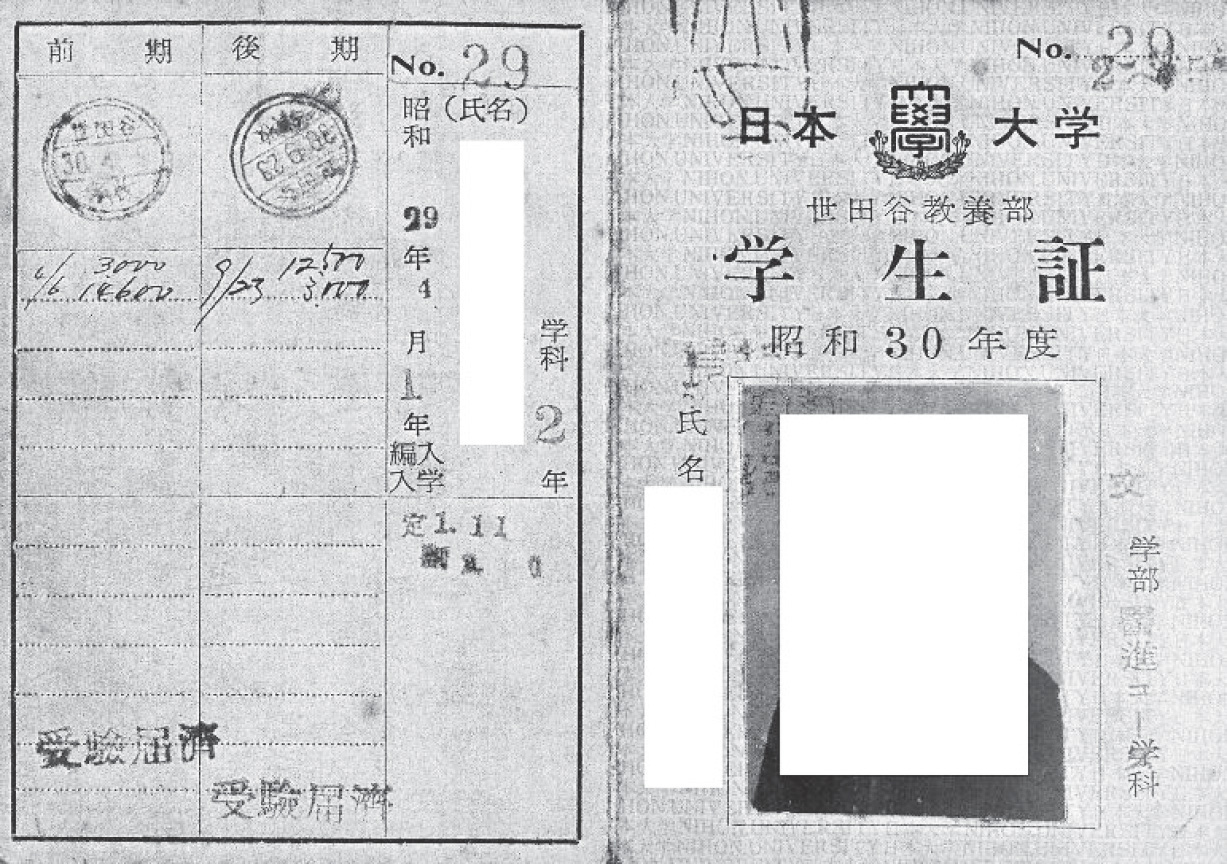 前期
後期
世田谷
30.4
6/6 3000
14600
9/23 12500
3000
受験届済
受験届済
No. 29
(氏名)
昭和29年4月1年編入入学
学科2年
定1.11
No. 29
日本大学
世田谷教養部
学生証
昭和30年度
氏名
文学部
進コー学科